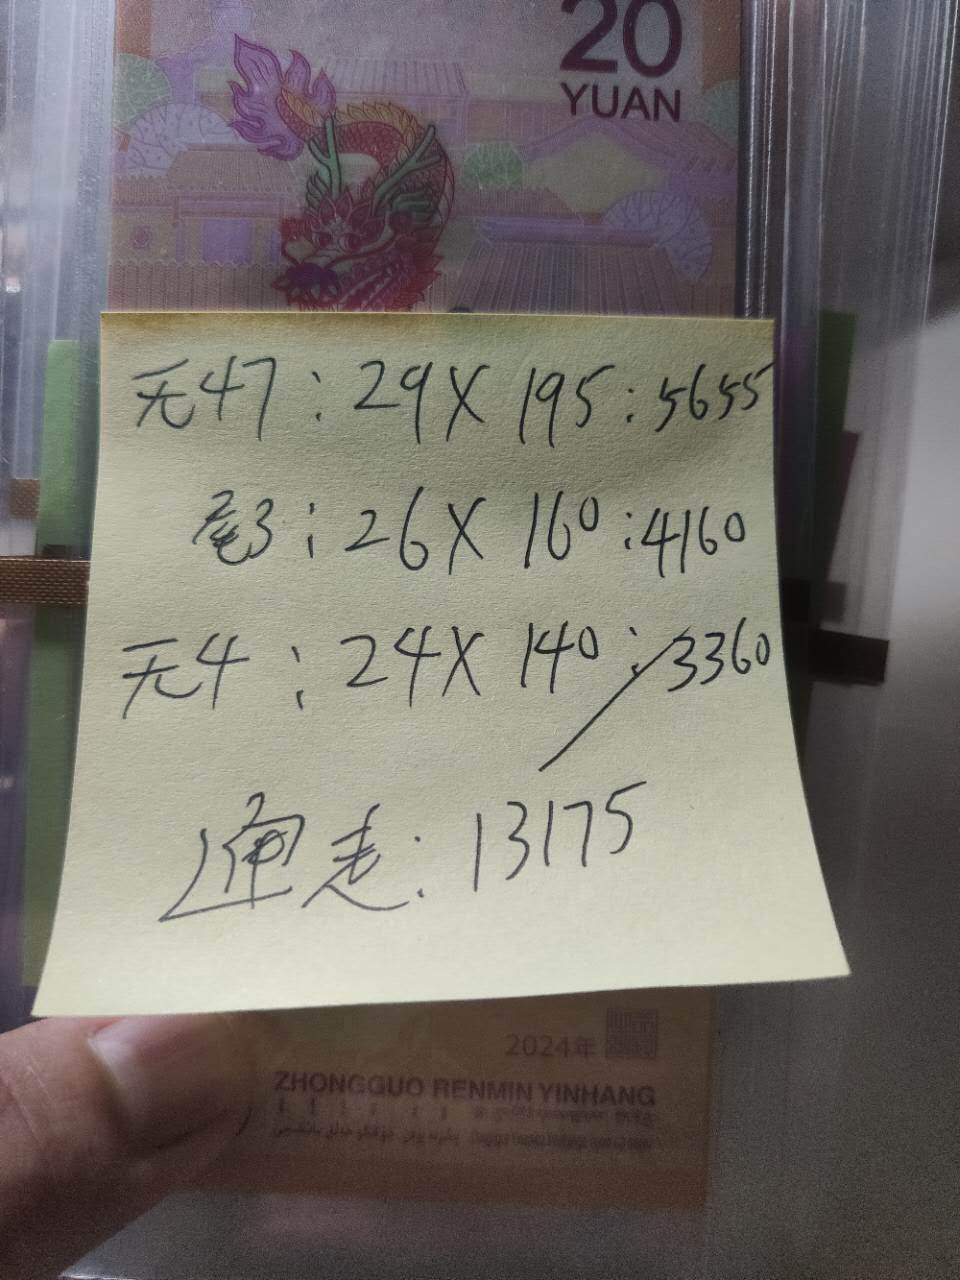 20
YUAN
无47：29X195：5655
尾3：26X160：4160
无4：24X140：3360
通走：13175
2024年
ZHONGGUO RENMIN YINHANG